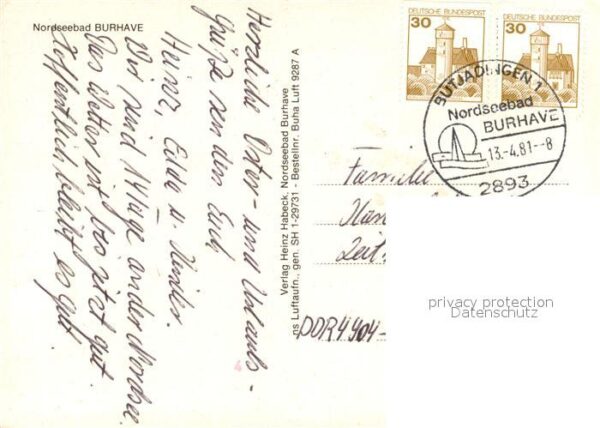 Nordseebad BURHAVE
Herzliche Oster- und Urlaubs-
Grüße senden Euch
Heinz, Edda u. Kinder.
Wir sind 14 Tage an der Nordsee.
Das Wetter ist bis jetzt gut.
Hoffentlich bleibt es gut.
Verlag Heinz Habeck, Nordseebad Burhave
ns Luftaufn., gen. SH 1-29731 - Bestellnr. Buha Luft 9287 A
DEUTSCHE BUNDESPOST
30
DEUTSCHE BUNDESPOST
30
BUTJADINGEN 1
Nordseebad
BURHAVE
13.-4.81--8
2893
Familie
DDR 4404-
privacy protection
Datenschutz